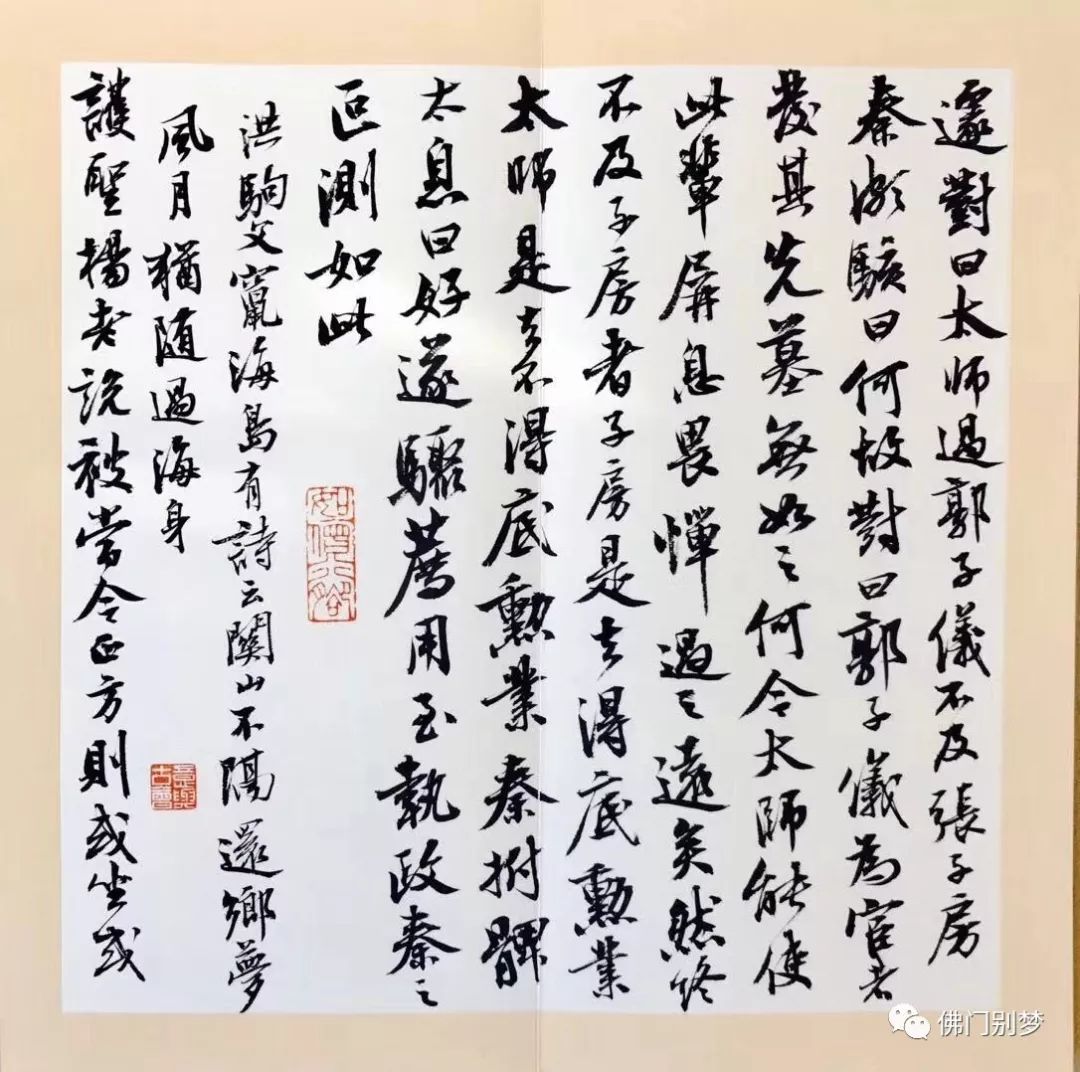 遽對曰太師過郭子儀不及張子房
秦頗駭曰何故對曰郭子儀為宦者
發其先墓無如之何今太師能使
此輩屏息畏憚過之遠矣然終
不及子房者子房是去得底勲業
太師是去不得底勲業秦拊髀
太息曰好遂驟薦用至執政秦之
叵測如此
洪駒父竄海島有詩云關山不隔還鄉夢
風月猶隨過海身
護聖楊老說被當令正方則或坐或
佛门别梦